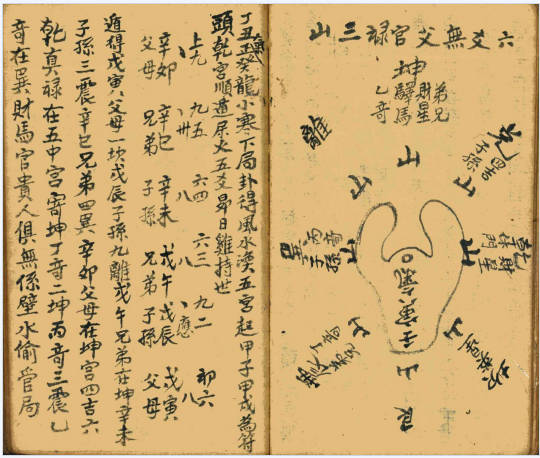 六爻無父官祿三山
坤
兄弟
財星
驛馬
乙奇
離
山
山
山
子孫
山
山
山
山
山
艮
丁丑癸龍小寒下局卦得風水渙五宮起甲子甲戌為符
頭乾宮順遁尾火五爻昴日雞持世
上九 九五 六四 六三 九二 初六
應
辛卯 辛巳 辛未 戊午 戊辰 戊寅
父母 兄弟 子孫 兄弟 子孫 父母
遁得戊寅父母一坎戊辰子孫九離戊午兄弟在坤辛未
子孫三震辛巳兄弟四巽辛卯父母在坤宮四吉六
乾真祿在五中宮寄坤丁奇二坤丙奇三震乙
奇在巽財馬官貴人俱無係壁水偷管局